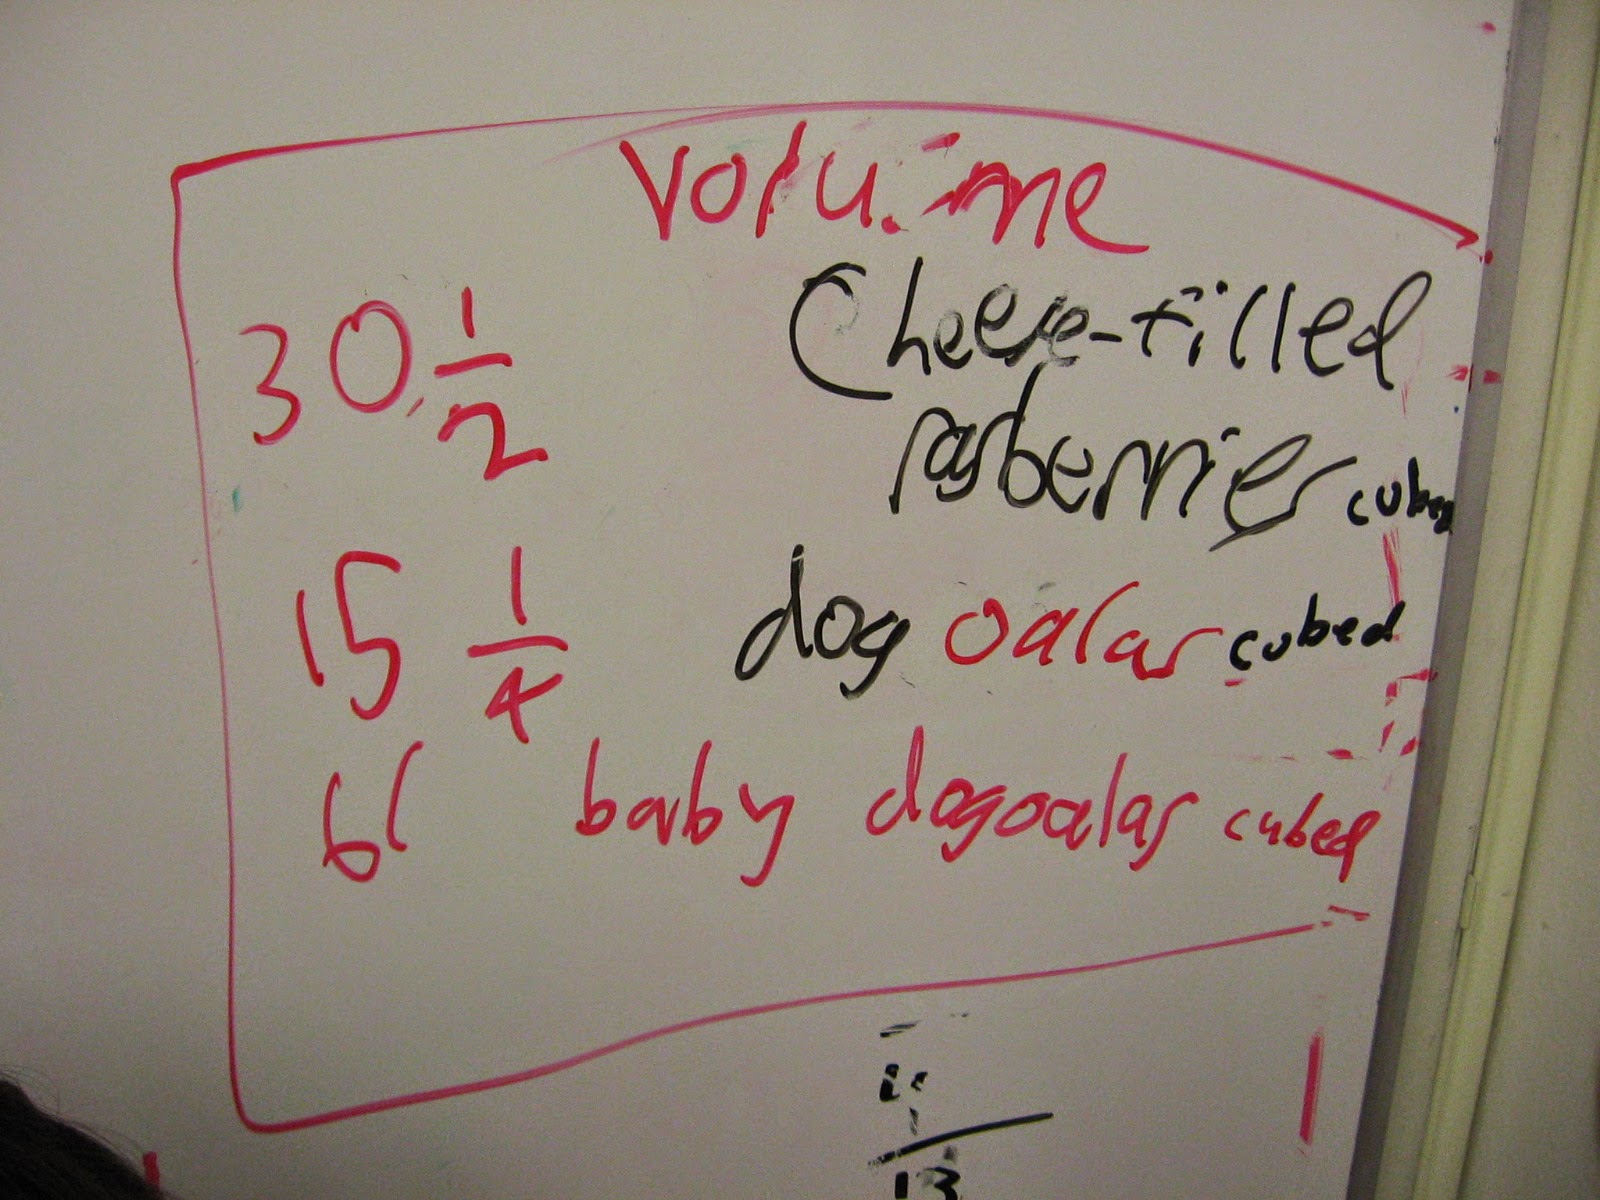 volume
30 1/2 Cheese-filled
rasberries cubed
15 1/4 dog oalas cubed
61 baby dogoalas cubed
13